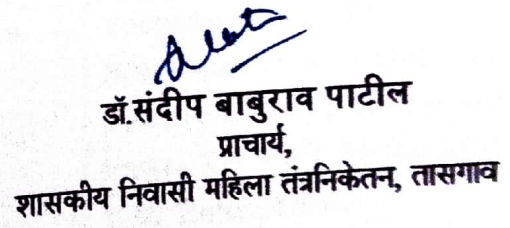 डॉ.संदीप बाबुराव पाटील
प्राचार्य,
शासकीय निवासी महिला तंत्रनिकेतन, तासगाव